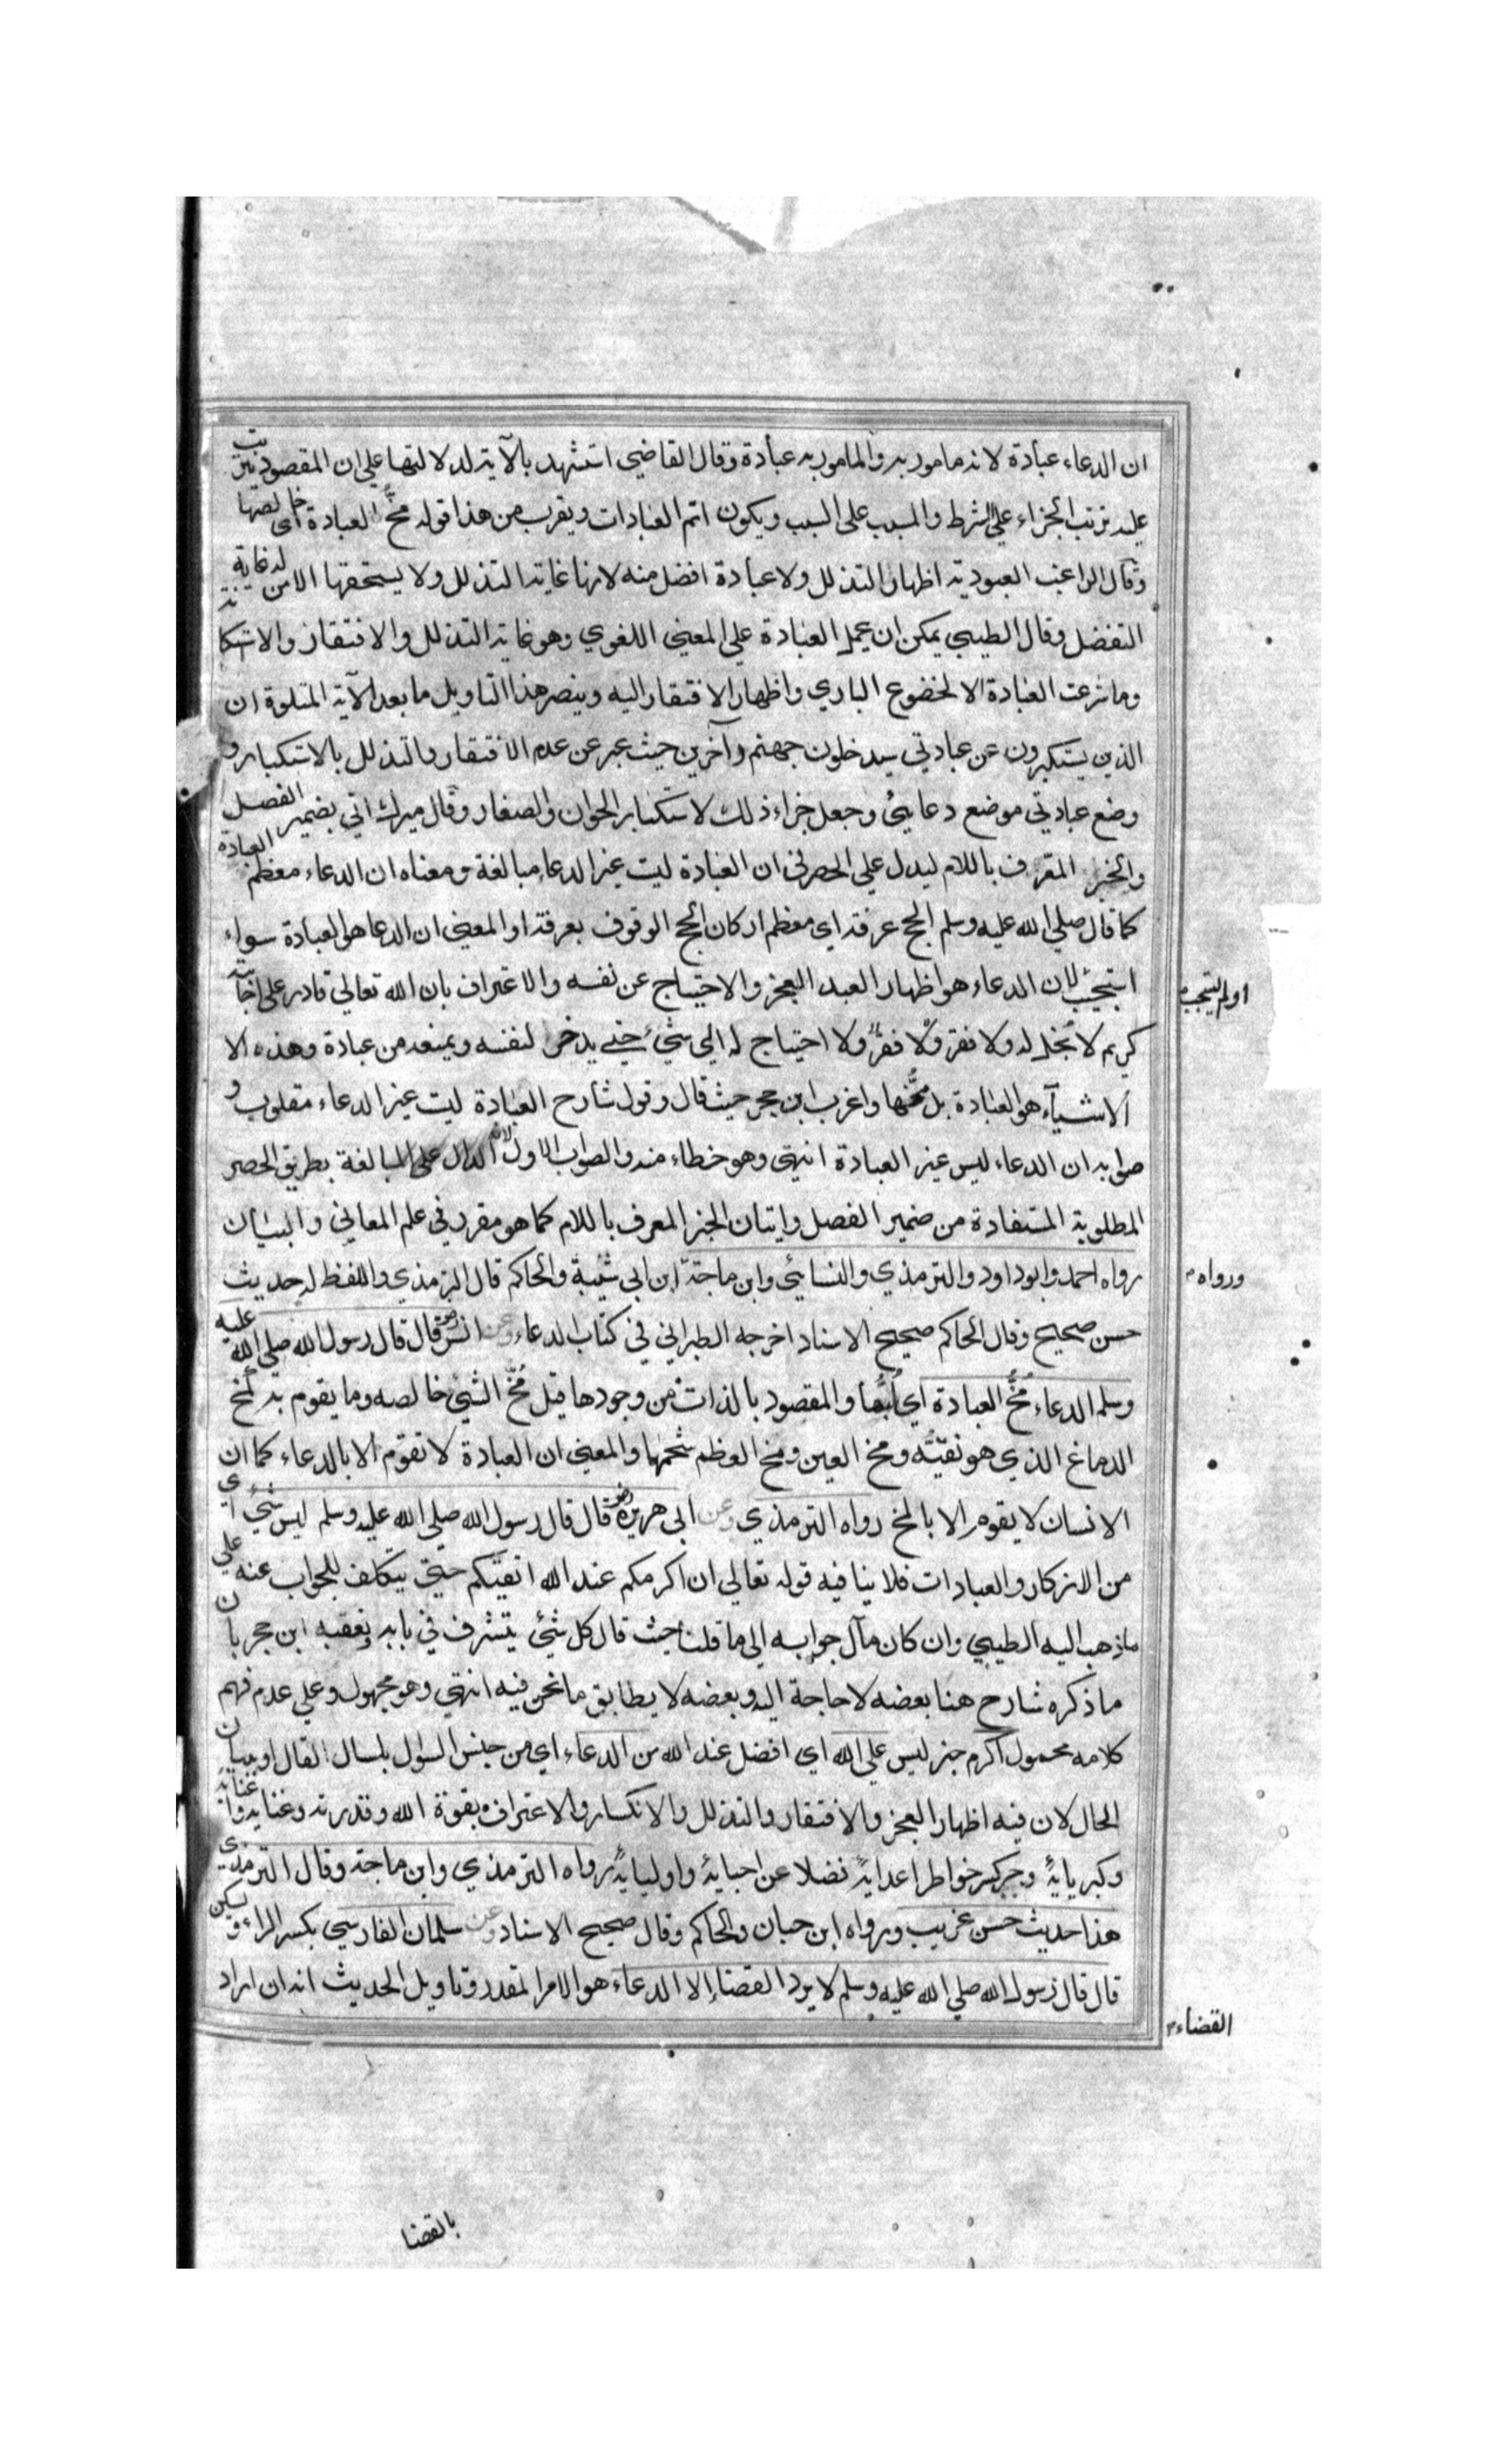 ان الدعاء عبادة لانه مامور به والمامور به عبادة وقال القاضي استشهد بالآية لدلالتها علي ان المقصود يترتب
عليه ترتب الجزاء علي الشرط والمسبب على السبب ويكون اتم العبادات ويقرب من هذا قوله مخ العبادة اى خالصها
وقال الراغب العبودية اظهار التذلل ولا عبادة افضل منه لانها غاية التذلل ولا يستحقها الا من له غاية
التفضل وقال الطيبي يمكن ان يحمل العبادة علي المعني اللغوي وهو غاية التذلل والافتقار والاستكا
وما شرعت العبادة الا لخضوع الباري واظهار الافتقار اليه وينصر هذا التاويل ما بعد الآية المتلوة ان
الذين يستكبرون عن عبادتي سيدخلون جهنم وآخرين حيث عبر عن عدم الافتقار والتذلل بالاستكبار و
وضع عبادتي موضع دعايئ وجعل جزاء ذلك لاستكبار الحوان والصغار وقال ميرك اتي بضمير الفصل
والخبر المعرف باللام ليدل علي الحصر في ان العبادة ليت غير الدعاء مبالغة ومعناه ان الدعاء معظم العبادة
كما قال صلي الله عليه وسلم الحج عرفة اي معظم اركان الحج الوقوف بعرفة او المعني ان الدعا هو العبادة سواء
استجيب لان الدعاء هو اظهار العبد العجز والاحتياج عن نفسه والاعتراف بان الله تعالي قادر على اجابته
او لم يستجب
كريم لا بخل له ولا فقر ولا احتياج له الي شيء حتي يدخر لنفسه ويمنعه من عبادة وهذه الا
الاشيآء هو العبادة بل مخها واغرب ابن حجر حيث قال وقول شارح العبادة ليت غير الدعاء مقلوب و
صوابه ان الدعاء ليس غير العبادة انتهى وهو خطاء منه والصواب الاول لانه الدال على المبالغة بطريق الحصر
المطلوبة المستفادة من ضمير الفصل وايتان الخبر المعرف باللام كما هو مقرر في علم المعاني والبيان
رواه احمد وابو داود والترمذي والنسايئ وابن ماجة ابن ابي شيبة والحاكم قال الترمذي واللفظ له حديث
ورواه
حسن صحيح وقال الحاكم صحيح الاسناد اخرجه الطبراني في كتاب الدعاء وعن انس رض قال قال رسول الله صلي الله عليه
وسلم الدعاء مخ العبادة اي لبها والمقصود بالذات من وجودها قيل مخ الشيئ خالصه وما يقوم به كمخ
الدماغ الذي هو نقيه ومخ العين ومخ العظم شحمها والمعني ان العبادة لا تقوم الا بالدعاء كما ان
الانسان لا يقوم الا بالمخ رواه الترمذي وعن ابي هريرة رض قال قال رسول الله صلي الله عليه وسلم ليس شيئ اي
من الاذكار والعبادات فلا ينافيه قوله تعالي ان اكرمكم عند الله اتقيكم حتي يتكلف للجواب عنه علي
ما ذهب اليه الطيبي وان كان مآل جوابه الي ما قلنا حيث قال كل شيئ يتشرف في بابه وتعقبه ابن حجر بان
ما ذكره شارح هنا بعضه لا حاجة اليه وبعضه لا يطابق ما نحن فيه انتهي وهو مجهول وعلي عدم فهم
كلامه محمول اكرم خبر ليس علي الله اي افضل عند الله من الدعاء اي من جنس السؤل بلسال القال او ببيان
الحال لان فيه اظهار العجز والافتقار والتذلل والانكسار والاعتراف بقوة الله وقدرته وغنايه
وكبريايه وجبر كسر خواطر اعدايه فضلا عن احبايه واوليايه رواه الترمذي وابن ماجة وقال الترمذي
هذا حديث حسن غريب ورواه ابن حبان والحاكم وقال صحيح الاسناد وعن سلمان الفارسي بكسر الراء ويسكن
قال قال رسول الله صلي الله عليه وسلم لا يرد القضاء الا الدعاء هو الامر المقدر وتاويل الحديث انه ان اراد
القضاء
بالقضا